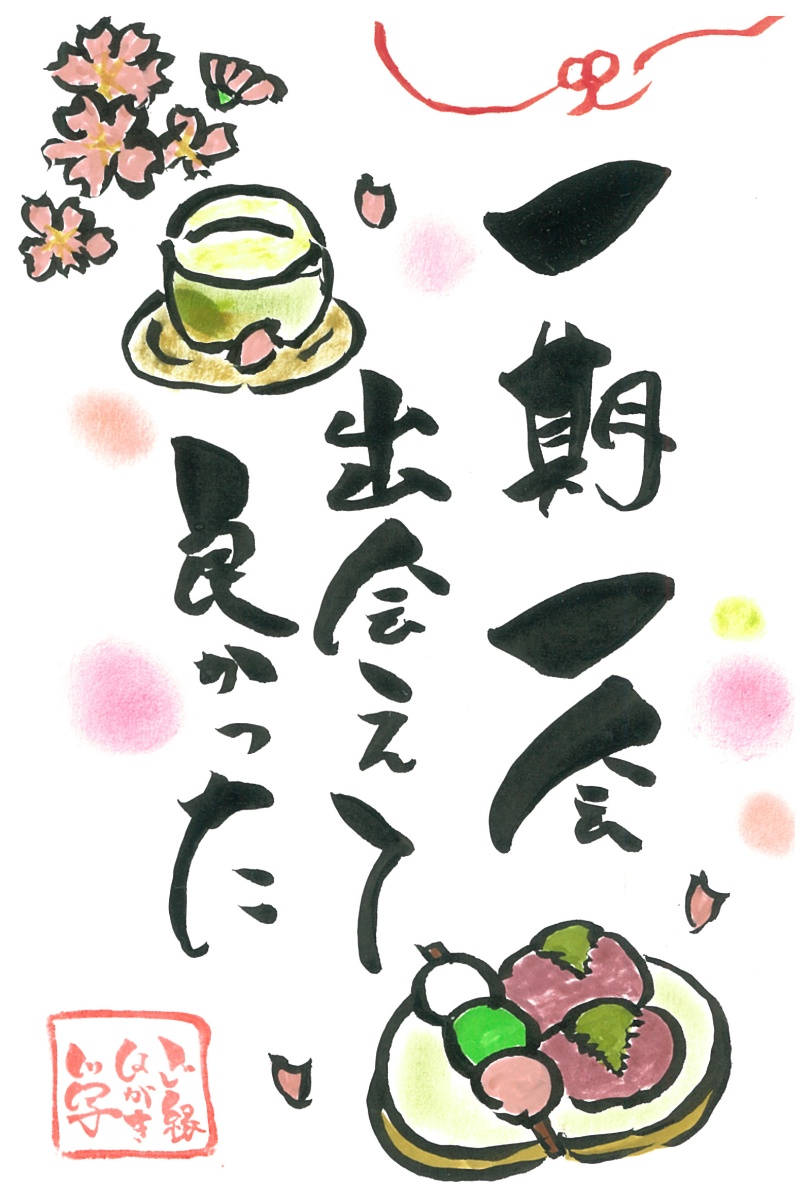 一期一会
出会えて
良かった
心縁
はがき
心字